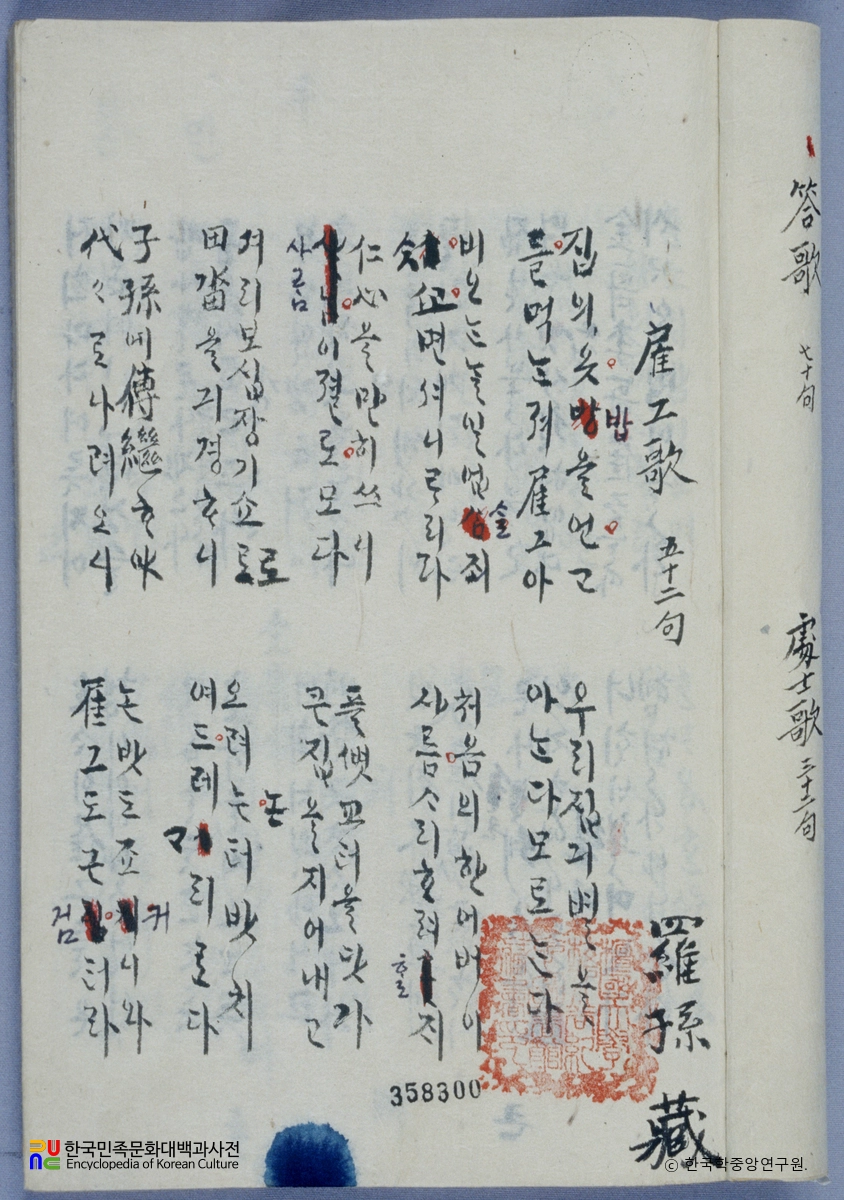 答歌 七十句
處士歌 三十二句
雇工歌 五十二句
羅孫 藏
집의 옷 밥을 언고
들먹는 져 雇工아
우리집 긔별을
아는다 모로는다
비오는 늘 일업슬 죄
ᄭᅩ면셔 니르리라
처음의 한어버이
사름스리 ᄒᆞ려 ᄒᆞᆯ 지
仁心을 만히 쓰니
사름이 졀로 모다
플ᄲᅧᆺ고 터을 닷가
큰집을 지어내고
져리보십 장기쇼로
田畓을 긔경ᄒᆞ니
오려논 터밧치
여드레 리로다
子孫에 傳繼ᄒᆞ야
代々로 나려오니
논밧도 죠커니와
雇工도 근검터라
358300
한국민족문화대백과사전
Encyclopedia of Korean Culture
© 한국학중앙연구원.